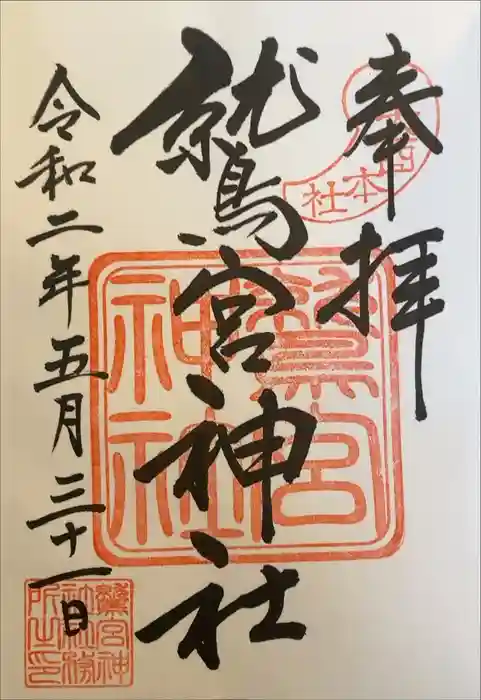 奉拝
本社
鷲宮神社
鷲宮
神社
令和二年五月三十一日
鷲宮神
社社務
所之印